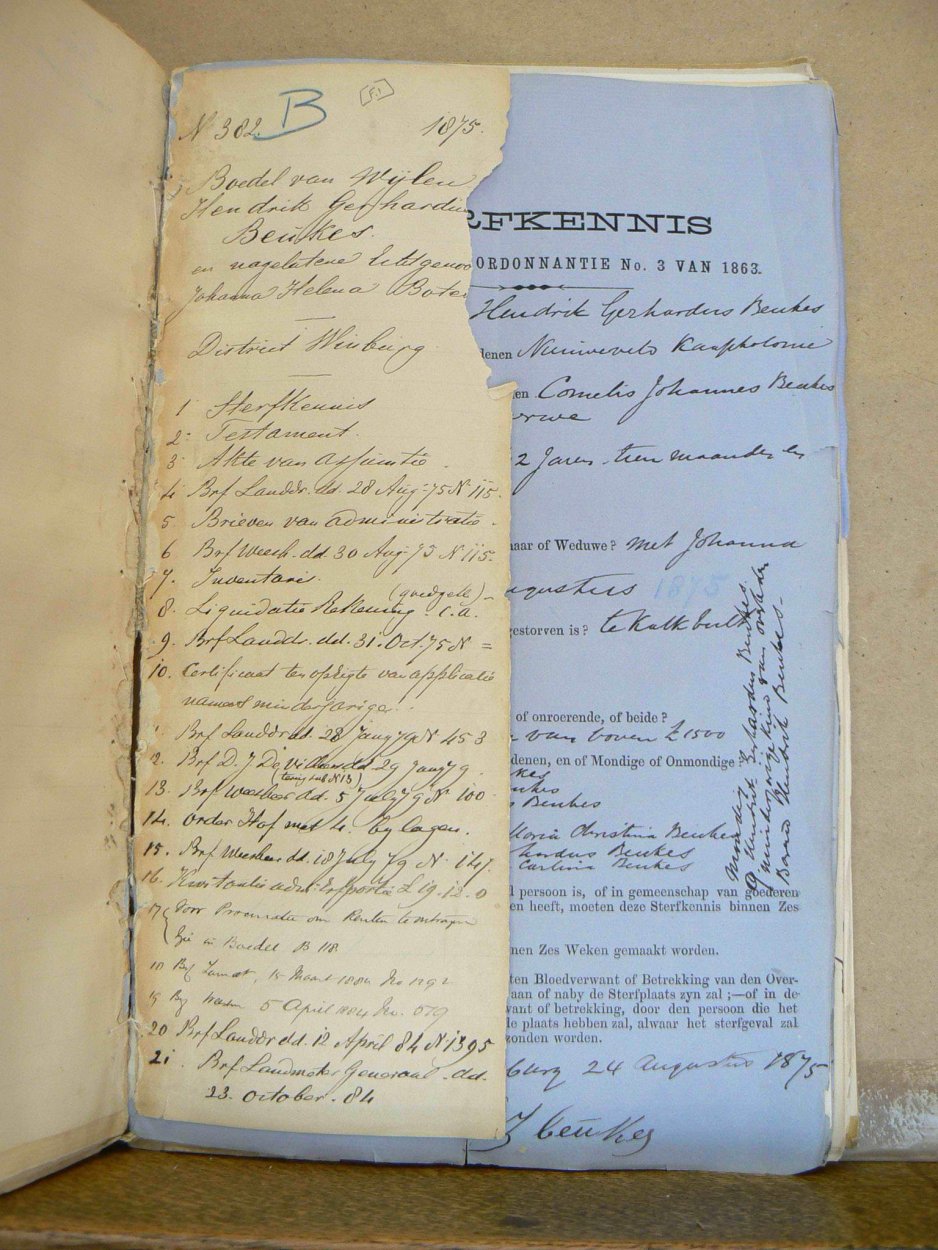 N 382 B 1875.
Boedel van Wijlen
Hendrik Gerhardus
Beukes.
en nagelatene Echtgenoo
Johanna Helena Bote
District Winburg
1 Sterfkennis
2 Testament.
3 Akte van assumtie
4 Brf Landdr. dd. 28 Aug 75 N 115.
5 Brieven van administratie.
6 Brf Weesh. dd. 30 Aug 75 N 115.
7. Inventaris.
8. Liquidatie Rekening (goedgek) c.a.
9. Brf Landdr. dd. 31. Oct. 75 N =
10. Certificaat ten opzigte van applicatie
namens minderjarige.
1. Brf Landdr dd. 28 Jany 79 N 453
2. Brf D. J. De Villiers dd 29 Jany 79.
(terug sub N 13)
13. Brf Weesheer dd. 5 July 79 N 100
14. order Hof met 4 bylagen.
15. Brf Weesheer dd. 18 July 79 N 147.
16. Kwitantie £ 19. 12. 0
17 Voor Procuratie om Renten te ontvangen
Zie in Boedel B 118.
18 Brf Landdr, 15 Maart 1884 No 1292
19 Brf 5 April 1884 No. 579
20 Brf Landdr dd. 12 April 84 N 1395
21. Brf Landmeter Generaal dd.
23. October. 84
RFKENNIS
ORDONNANTIE No. 3 VAN 1863.
Hendrik Gerhardus Beukes
denen Nieuwevelt Kaapkolonie
en Cornelis Johannes Beukes
erwe
2 Jaren tien maanden en
naar of Weduwe? met Johanna
ugustus 1875
gestorven is? te Kalkbult
of onroerende, of beide?
van boven £1500
denen, en of Mondige of Onmondige
kes
eukes
s Beukes
Maria Christina Beukes
hardus Beukes
Carlina Beukes
mondig
9. Hendrik Gerhardus Beukes.
minderjarige kind van
Barend Hendrik Beukes.
d persoon is, of in gemeenschap van goederen
en heeft, moeten deze Sterfkennis binnen Zes
nen Zes Weken gemaakt worden.
ten Bloedverwant of Betrekking van den Over-
aan of naby de Sterfplaats zyn zal ;—of in de-
vant of betrekking, door den persoon die het
de plaats hebben zal, alwaar het sterfgeval zal
zonden worden.
burg 24 Augustus 1875
J Beukes